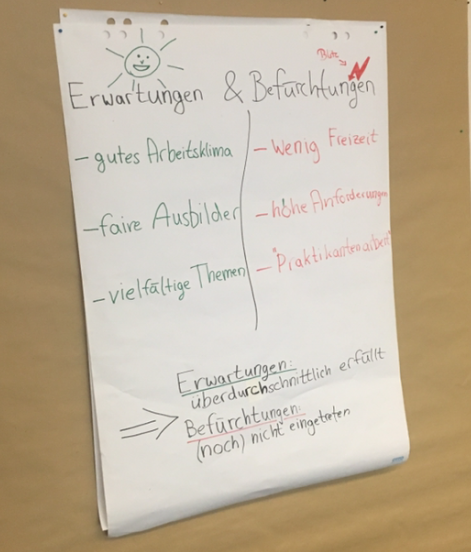 Blitz
Erwartungen & Befürchtungen
- gutes Arbeitsklima
- faire Ausbilder
- vielfältige Themen
- Wenig Freizeit
- hohe Anforderungen
- "Praktikantenarbeit"
Erwartungen:
überdurchschnittlich erfüllt
⇒ Befürchtungen:
(noch) nicht eingetreten